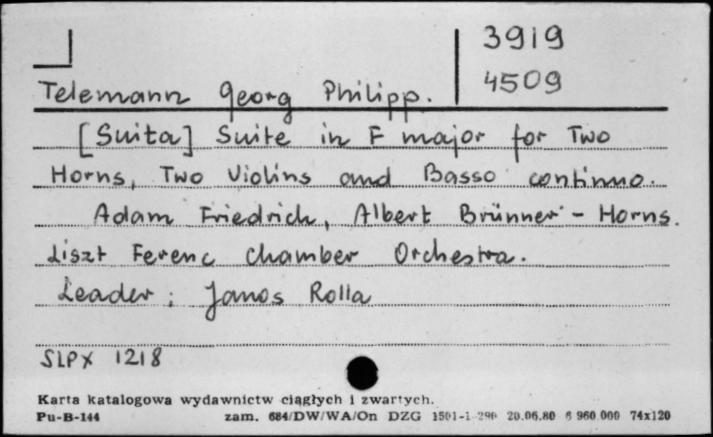 3919
4509
Telemann Georg Philipp.
[Suita] Suite in F major for Two
Horns, Two Violins and Basso continuo.
Adam Friedrich, Albert Brünner - Horns.
Liszt Ferenc Chamber Orchestra.
Leader: Janos Rolla
SLPX 1218
Karta katalogowa wydawnictw ciągłych i zwartych.
Pu-B-144 zam. 684/DW/WA/On DZG 1501-1 20.06.80 6 960 000 74x120